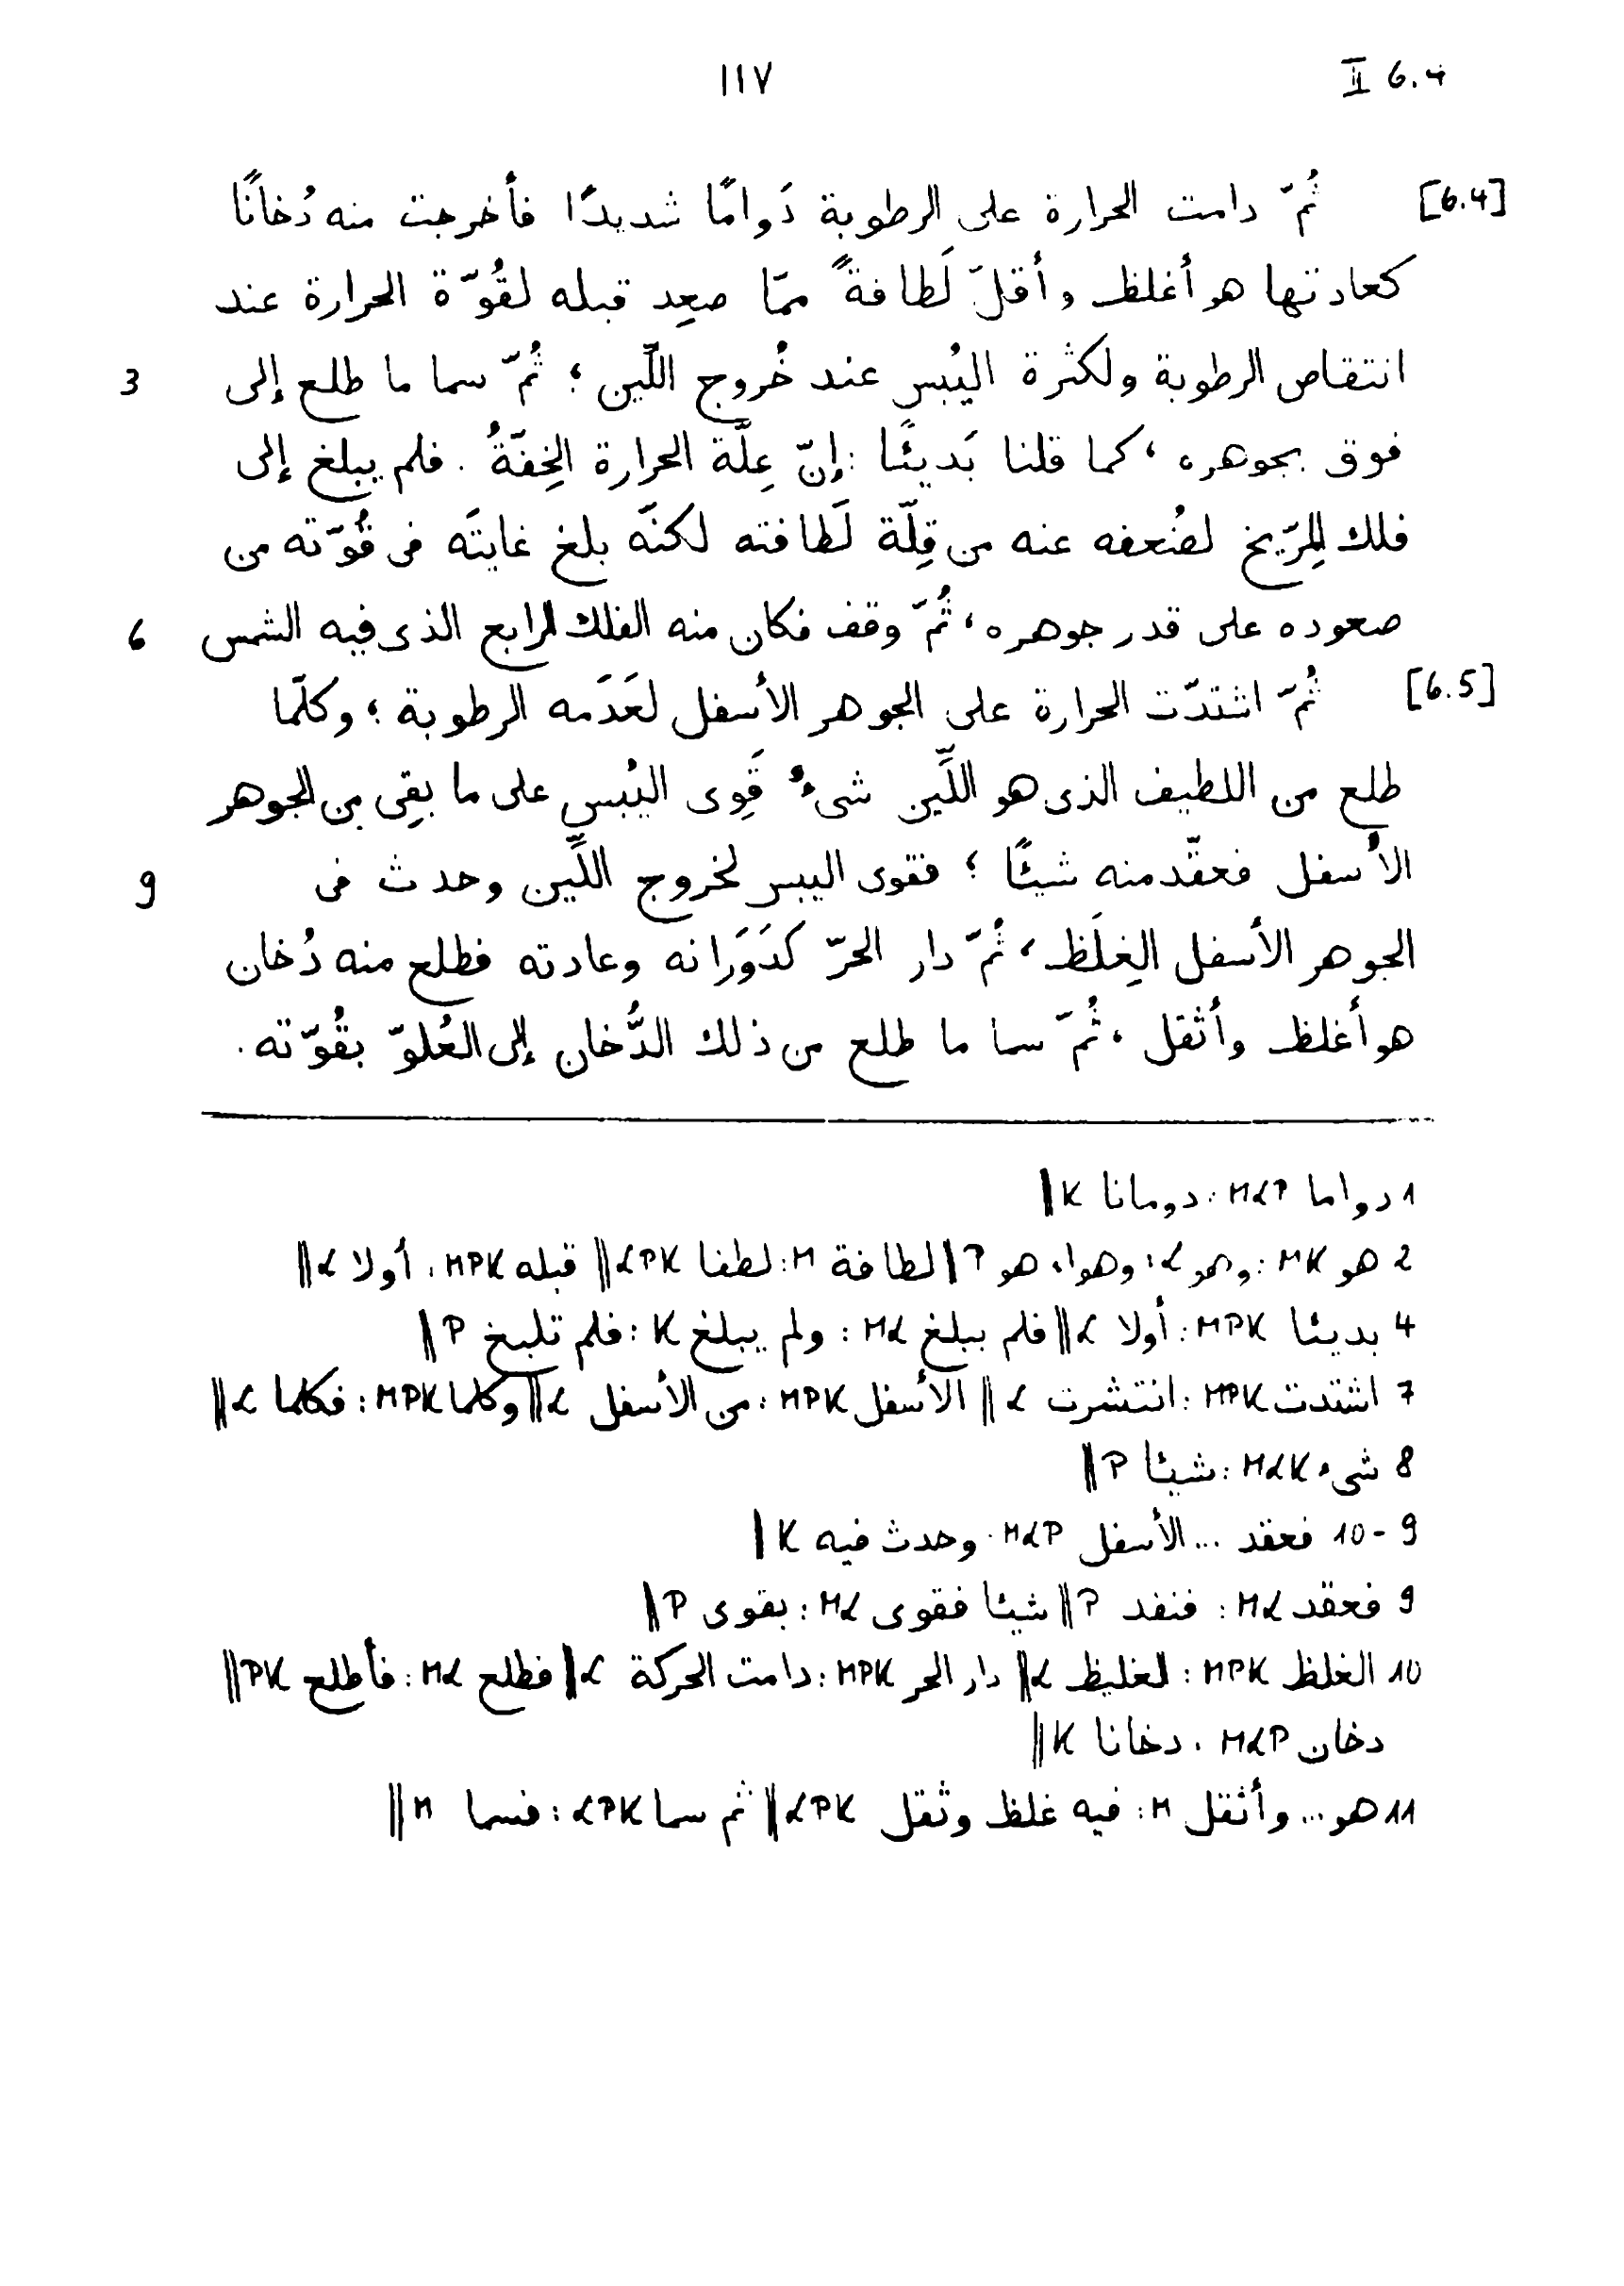 ١١٧ II 6.4
[6.4] ثُمّ دامت الحرارة على الرطوبة دَوامًا شديدًا فأخرجت منه دُخانًا
كعادتها هو أغلظ وأقلّ لَطافةً ممّا صعِد قبله لقُوّة الحرارة عند
انتقاص الرطوبة ولكثرة اليُبس عند خُروج اللَّين ؛ ثُمّ سما ما طلع إلى 3
فوق بجوهره ، كما قلنا بَديئًا : إنّ عِلّة الحرارة الخِفّةُ . فلم يبلغ إلى
فلك المِرّيخ لضُعفه عنه من قِلّة لَطافته لكنّه بلغ غايتَه فى قُوّته من
صعوده على قدر جوهره ، ثُمّ وقف فكان منه الفلك الرابع الذى فيه الشمس 6
[6.5] ثُمّ اشتدّت الحرارة على الجوهر الأسفل لعَدَمه الرطوبة ؛ وكلّما
طلع من اللطيف الذى هو اللَّين شىءٌ قَوِى اليُبس على ما بقِى من الجوهر
الأسفل فعقّد منه شيئًا ؛ فقوى اليبس لخروج اللَّين وحدث فى 9
الجوهر الأسفل الغِلَظ ، ثُمّ دار الحرّ كدَوَرانه وعادته فطلع منه دُخان
هو أغلظ وأثقل ، ثُمّ سما ما طلع من ذلك الدُّخان إلى العُلوّ بقُوّته .
1 دواما MαP : دومانا K ‖
2 هو MK : وهو α : وهواء هو P ‖ لطافة M : لطفا αPK ‖ قبله MPK : أولا α ‖
4 بديئا MPK : أولا α ‖ فلم يبلغ Mα : ولم يبلغ K : فلم تلبخ P ‖
7 اشتدت MPK : انتشرت α ‖ الأسفل MPK : من الأسفل α ‖ وكلما MPK : فكلما α ‖
8 شىء MαK : شيئا P ‖
9 - 10 فعقد ... الأسفل MαP : وحدث فيه K ‖
9 فعقد Mα : فنفد P ‖ شيئا فقوى Mα : بقوى P ‖
10 الغلظ MPK : لغليظ α ‖ دار الحر MPK : دامت الحركة α ‖ فطلع Mα : فأطلع PK ‖
دخان MαP : دخانا K ‖
11 هو ... وأثقل M : فيه غلظ وثقل αPK ‖ ثم سما αPK : فسما M ‖